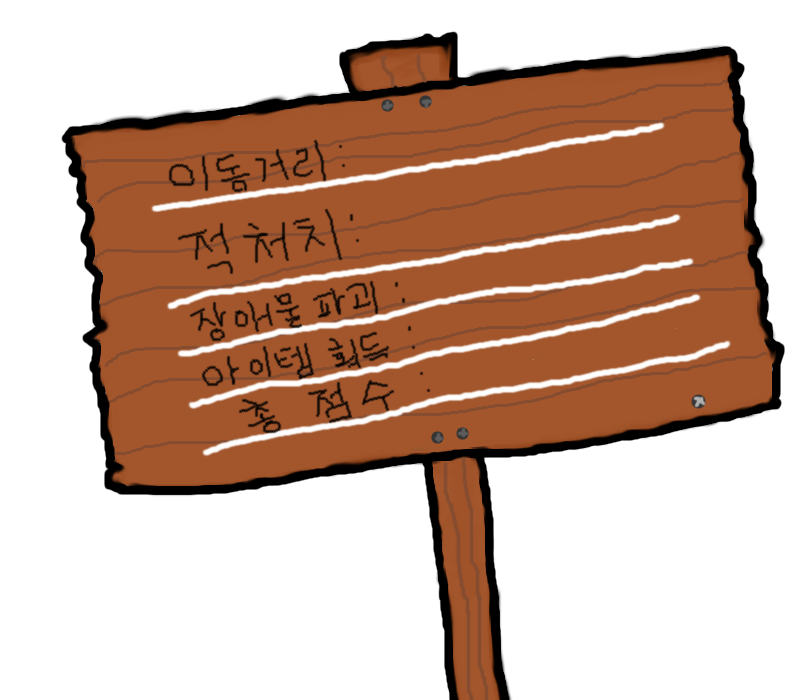 이동거리:
적 처치:
장애물 파괴:
아이템 획득:
총 점수: